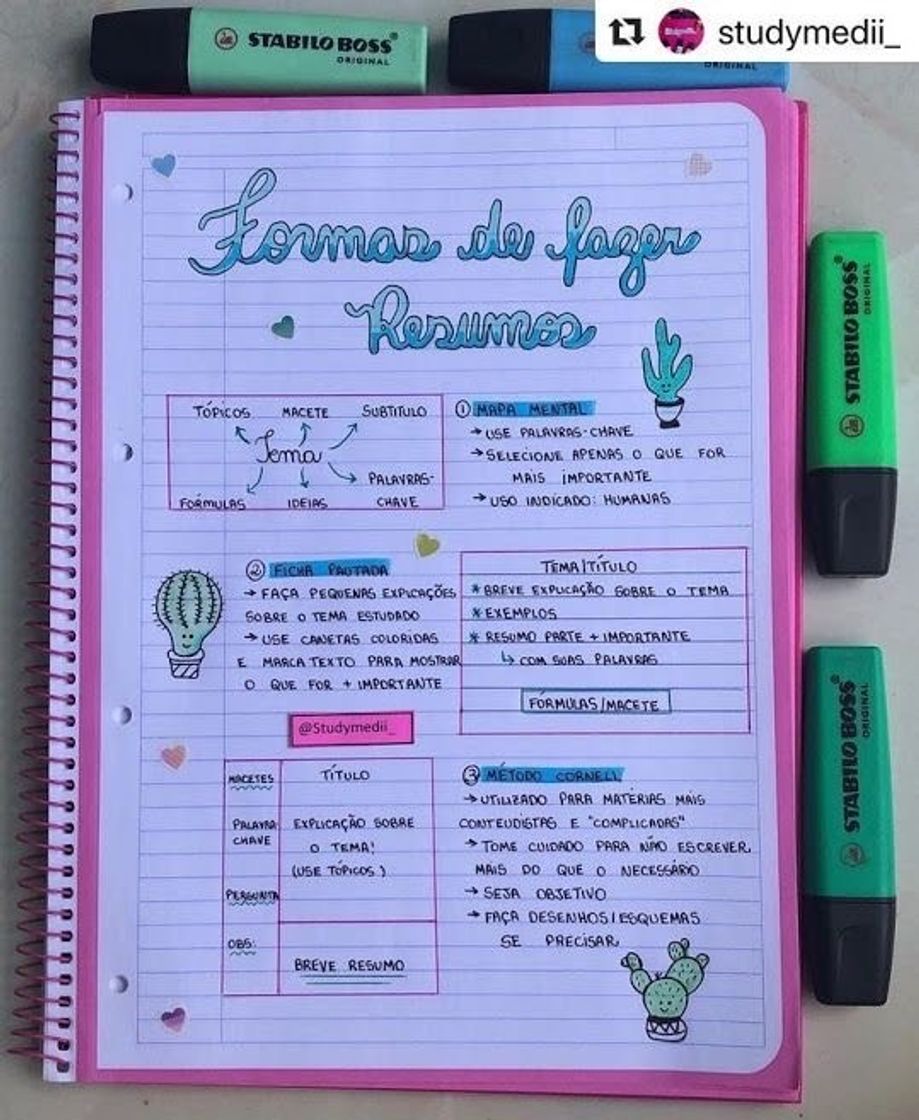 STABILO BOSS®
ORIGINAL
ORIGINAL
studymedii_
Formas de fazer
Resumos
TÓPICOS MACETE SUBTITULO
Tema
PALAVRAS-
CHAVE
FÓRMULAS IDEIAS
① MAPA MENTAL
→ USE PALAVRAS-CHAVE
→ SELECIONE APENAS O QUE FOR
MAIS IMPORTANTE
→ USO INDICADO: HUMANAS
② FICHA PAUTADA
→ FAÇA PEQUENAS EXPLICAÇÕES
SOBRE O TEMA ESTUDADO
→ USE CANETAS COLORIDAS
E MARCA TEXTO PARA MOSTRAR
O QUE FOR + IMPORTANTE
TEMA/TÍTULO
* BREVE EXPLICAÇÃO SOBRE O TEMA
* EXEMPLOS
* RESUMO PARTE + IMPORTANTE
↳ COM SUAS PALAVRAS
FÓRMULAS/MACETE
@Studymedii_
MACETES
PALAVRA
CHAVE
PERGUNTA
OBS:
TÍTULO
EXPLICAÇÃO SOBRE
O TEMA!
(USE TÓPICOS)
BREVE RESUMO
③ MÉTODO CORNELL
→ UTILIZADO PARA MATÉRIAS MAIS
CONTEUDISTAS E "COMPLICADAS"
→ TOME CUIDADO PARA NÃO ESCREVER
MAIS DO QUE O NECESSÁRIO
→ SEJA OBJETIVO
→ FAÇA DESENHOS/ESQUEMAS
SE PRECISAR
STABILO BOSS®
ORIGINAL
STABILO BOSS®
ORIGINAL